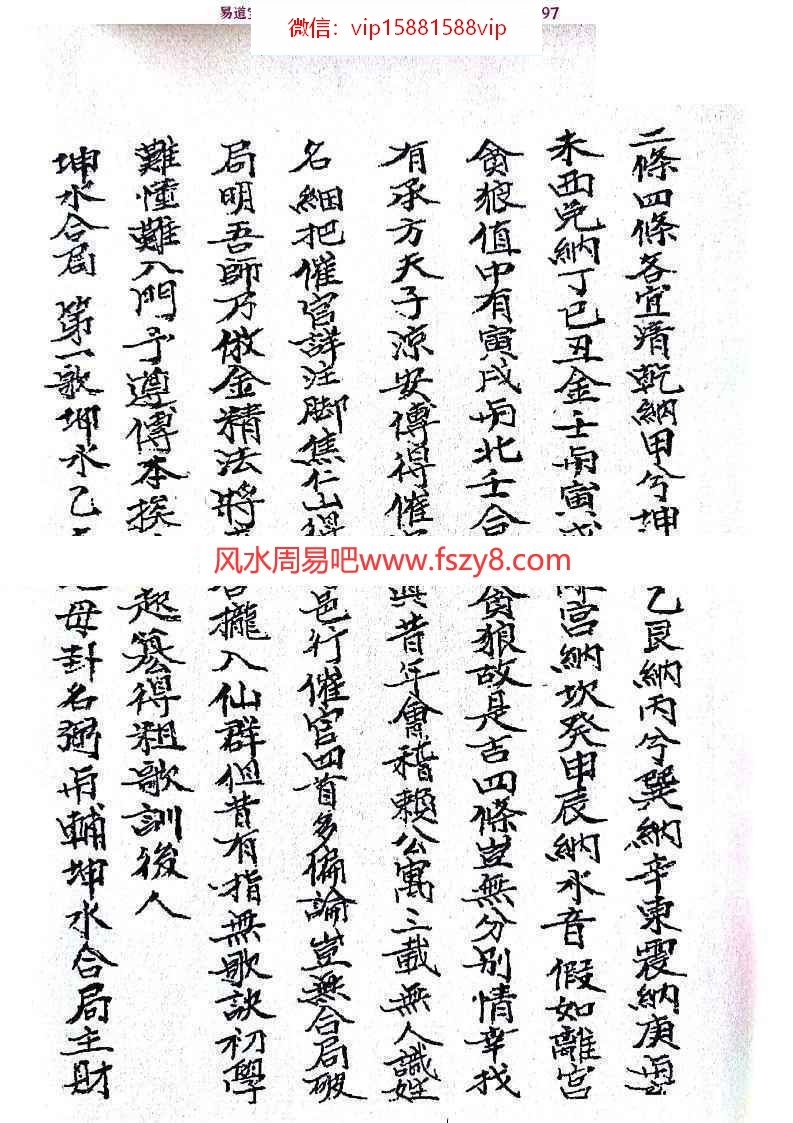 易道
97
微信：vip15881588vip
二條四條各宜清乾納甲兮坤 乙艮納丙兮巽納辛東震納庚亥
未西兌納丁巳丑金壬丙寅戌 宮納坎癸申辰納水音假如離宮
貪狼值中有寅戌丙北壬合 貪狼故是吉四條豈無分別情幸找
有承方天子涼安傳得催 與昔年會稽賴公寓三載無人識姓
名細把催官詳注腳焦仁山得 邑行催官四首多偏論豈無合局破
局明吾師乃倣金精法將 攏入仙群但昔有指無歌訣初學
難懂難入門予遵傳本挨 起篡得粗歌訓後人
坤水合局 第一歌坤水乙 母卦名弼丙輔坤水合局主財
风水周易吧www.fszy8.com